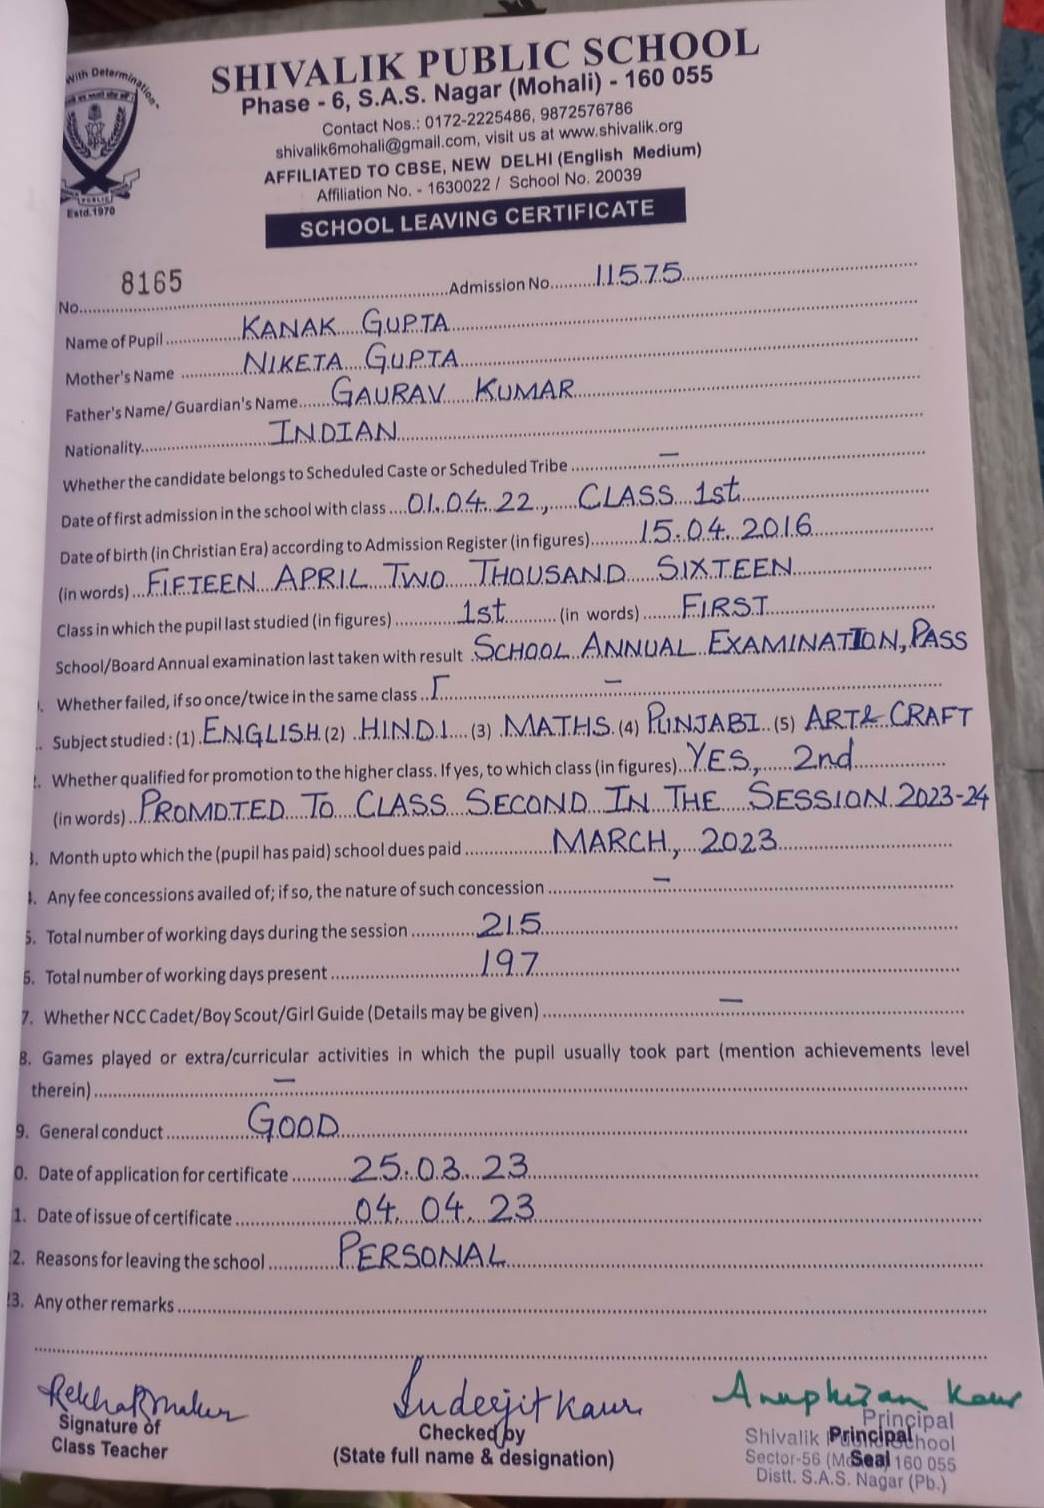 With Determination"
PUBLIC
Estd.1970
SHIVALIK PUBLIC SCHOOL
Phase - 6, S.A.S. Nagar (Mohali) - 160 055
Contact Nos.: 0172-2225486, 9872576786
shivalik6mohali@gmail.com, visit us at www.shivalik.org
AFFILIATED TO CBSE, NEW DELHI (English Medium)
Affiliation No. - 1630022 / School No. 20039
SCHOOL LEAVING CERTIFICATE
No. 8165 Admission No. 11575
Name of Pupil KANAK GUPTA
Mother's Name NIKETA GUPTA
Father's Name/ Guardian's Name GAURAV KUMAR
Nationality INDIAN
Whether the candidate belongs to Scheduled Caste or Scheduled Tribe –
Date of first admission in the school with class 01.04.22, CLASS 1st
Date of birth (in Christian Era) according to Admission Register (in figures) 15.04.2016
(in words) FIFTEEN APRIL TWO THOUSAND SIXTEEN
Class in which the pupil last studied (in figures) 1st (in words) FIRST
School/Board Annual examination last taken with result SCHOOL ANNUAL EXAMINATION, PASS
. Whether failed, if so once/twice in the same class –
. Subject studied : (1) ENGLISH (2) HINDI (3) MATHS (4) PUNJABI (5) ART& CRAFT
. Whether qualified for promotion to the higher class. If yes, to which class (in figures) YES, 2nd
(in words) PROMOTED TO CLASS SECOND IN THE SESSION 2023-24
3. Month upto which the (pupil has paid) school dues paid MARCH, 2023
4. Any fee concessions availed of; if so, the nature of such concession –
5. Total number of working days during the session 215
6. Total number of working days present 197
7. Whether NCC Cadet/Boy Scout/Girl Guide (Details may be given) –
8. Games played or extra/curricular activities in which the pupil usually took part (mention achievements level
therein) –
9. General conduct GOOD
0. Date of application for certificate 25.03.23
1. Date of issue of certificate 04.04.23
2. Reasons for leaving the school PERSONAL
3. Any other remarks
Signature of
Class Teacher
Sudeejit Kaur
Checked by
(State full name & designation)
Kaur
Principal
Shivalik Principal School
Sector-56 Seal 160 055
Distt. S.A.S. Nagar (Pb.)